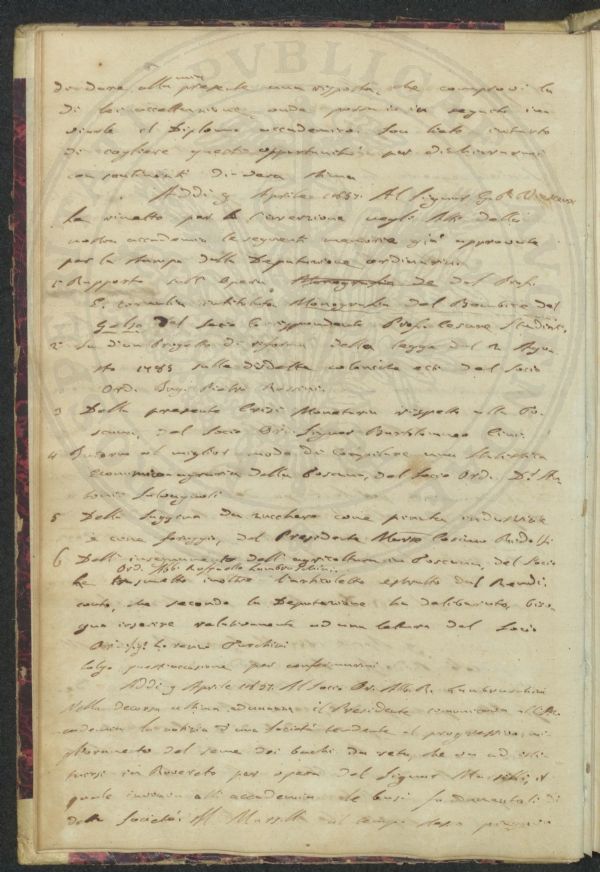 alla presente una risposta, che comprovi la
di Lei accettazione, onde possa in seguito in
viarle il Diploma accademico. Son lieto intanto
di cogliere questa opportunità per dichiararmi
con sentimenti di vera stima
Addì 9 Aprile 1857. Al Signor
per l'inserzione negli Atti della
nostra accademia le seguenti memorie già approvate
per la stampa dalla Deputazione ordinaria
1° Rapporto sull'Opera Monografia de del Prof.
E. Cornalia intitolata Monografia del Bombice del
Gelso del Socio Corrispondente Prof. Cesare Studiati
2° Su d'un Progetto di riforma della legge del 2 Ago
sto 1785 sulle disdette coloniche ecc. del Socio
Ord.
3 Della presente Crisi Monetaria rispetto alla To
scana, del Socio Ord. Signor Bartolommeo Cini.
4 Intorno al miglior modo di compilare una Statistica
economico agraria della Toscana, del Socio Ord. Dr. An
tonio Salvagnoli
5 Della Saggina da zucchero come pianta industriale
e come foraggio, del Presidente Marse Cosimo Ridolfi
6 Dell'insegnamento dell'agricoltura in Toscana, del Socio
Ord. Abb. Raffaello Lambruschini
Ha trasmetto inoltre l'articoletto estratto dal Rendi
conto, che secondo la Deputazione ha deliberato, biso
gna inserire relativamente ad una lettera del Socio
Ord.
Colgo quest'occasione per confermarmi
Addì 9 Aprile 1857. Al Socio Ord. Abb. R. Lambruschini
Nella decorsa ultima adunanza il Presidente comunicava all'Ac
cademia la notizia d'una Società tendente al progressivo mi
glioramento del seme dei bachi da seta, che va ad isti
tuirsi in Rovereto per opera del Signor
quale inviava all'accademia le basi fondamentali di
detta Società. Il tempo stesso